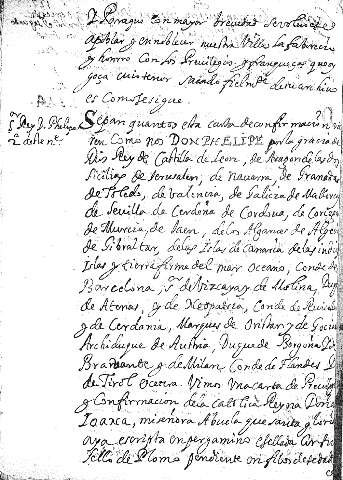 Y Para q con mayor brevedad se
apoblar y ennoblecer nuestra Villa la fabrica
y honrro con los Privilegios, y franqueças que o
goça
es Como se sigue.
Rey D. Phelipe
2º deste nº
Sepan quantos esta carta de confirmacion
ren Como nos DON PHELIPE por la gracia de
Dios Rey de Castilla de Leon, de Aragon de las dos
Sicilias de Jerusalem, de Navarra, de Granada
de Toledo, de Valencia, de Galicia de Mallorca
de Sevilla de Cerdeña de Cordova, de Corcega
de Murcia, de Jaen, de los Algarves de Algec
de Gibraltar, de las Islas de Canaria de las indias
Islas y tierra firma del mar Oceano, Conde de
Barcelona, Sr de Vizcaya y de Molina, Duq
de Atenas, y de Neopatria, Conde de Ruisello
y de Cerdania, Marques de Oristan y de Gocia
Archiduque de Austria, Duque de Borgoña
Brabante y de Milan, Conde de Flandes
de Tirol etcetera. Vimos una carta de Previleg
y Confirmacion de la Catolica Reyna Doña
Joana, mi señora Abuela que santa gloria
aya escripta en pergamino e sellada con su
sello de Plomo pendiente en filos de seda de